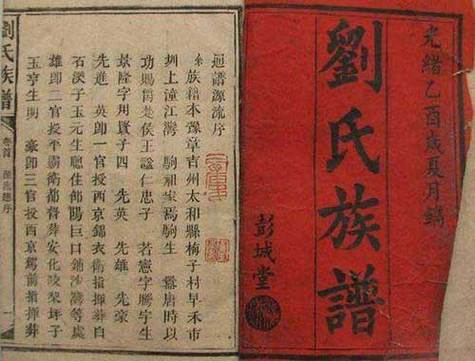 光緒乙酉歲夏月鐫
劉氏族譜
彭城堂
譜源流序
族籍本豫章吉州太和縣梅子村早禾市
圳上潼江灣 駒祖家焉駒生 唐時以
功賜爵楚侯王謚仁忠子 若憲字聯宇生
景隆字用賓子四 先英 先雄 先豪
先進 英郎一官授西京錦衣衛指揮葬白
石子玉元生聰住邵陽巨口鋪沙灣等處
雄郎二官授平衛都督葬安化坪子
玉亨生明 豪郎三官授西京駕前指揮葬
劉氏族譜
卷首 源流總序